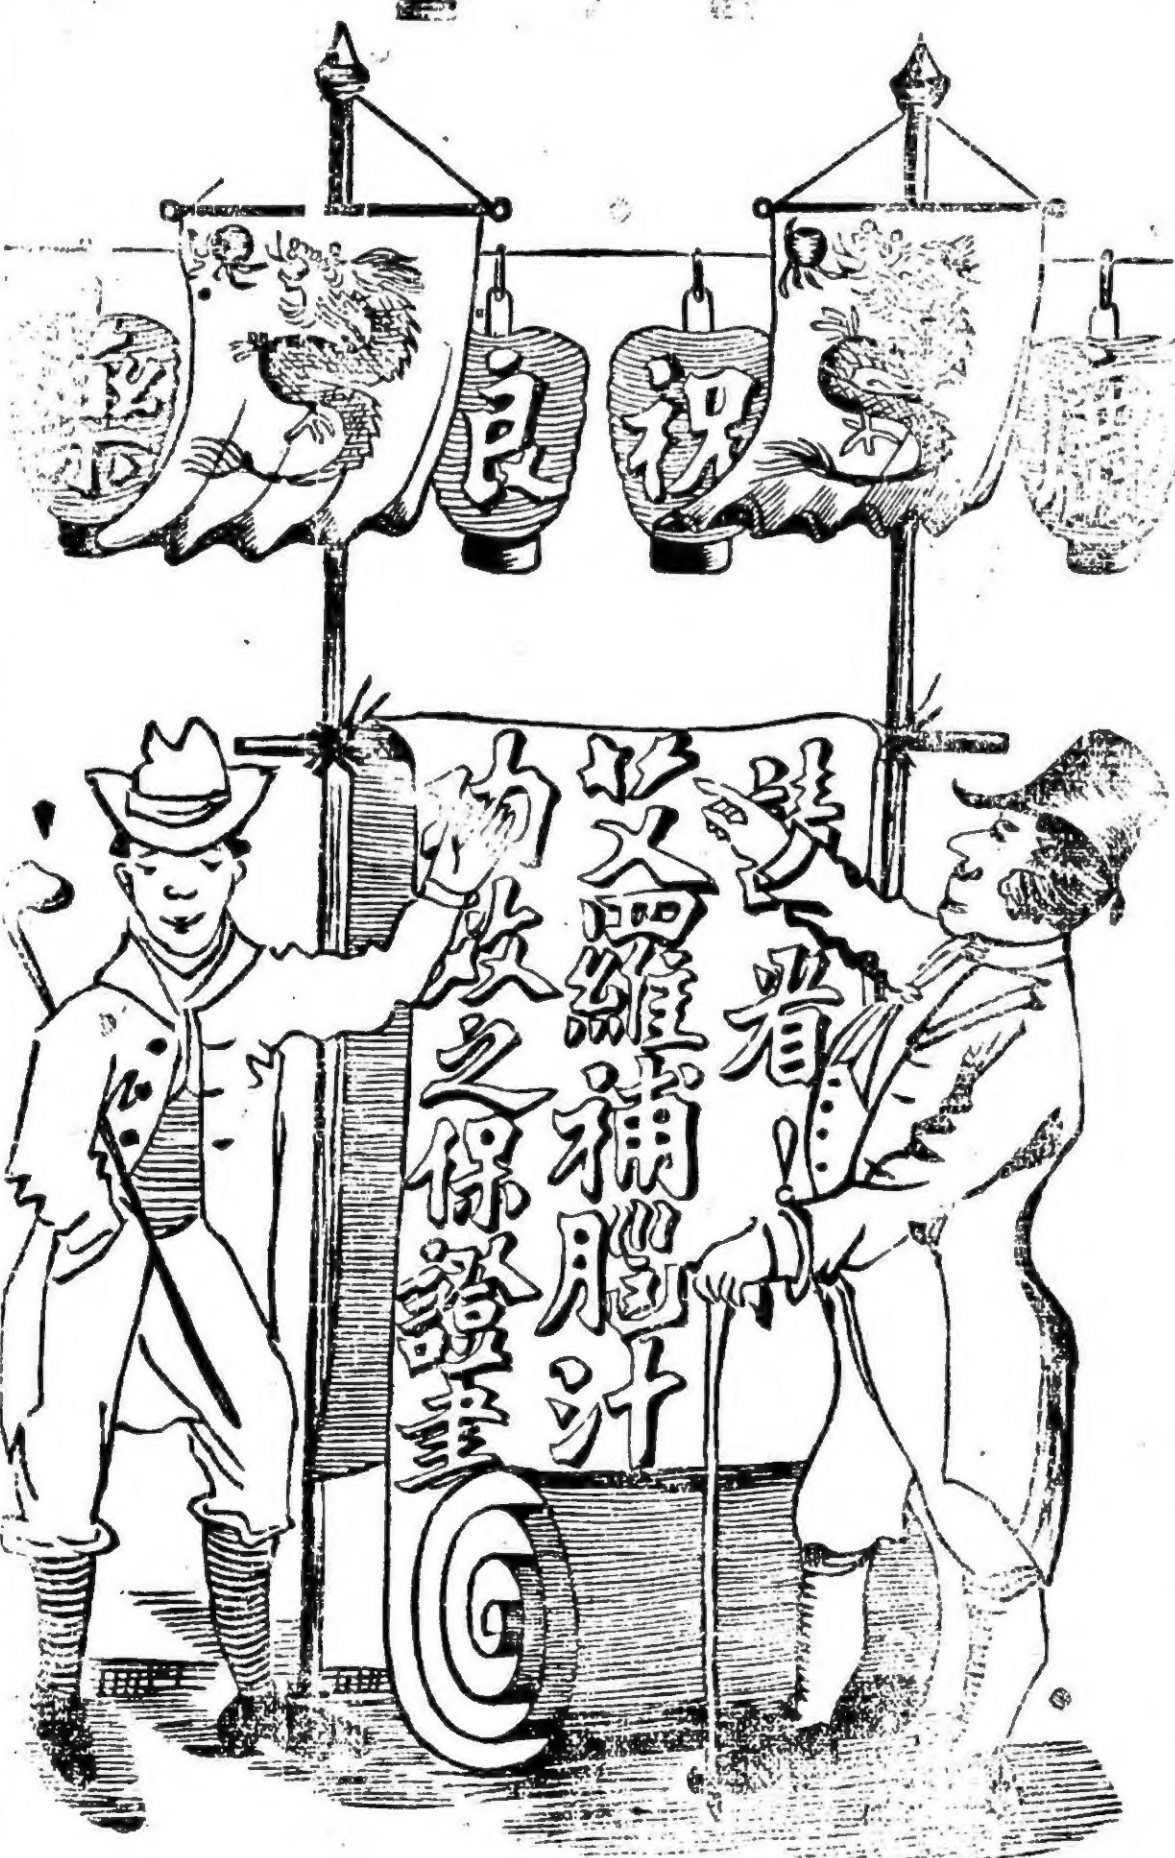 祝良藥
請看！
艾羅補腦汁
功效之保證書